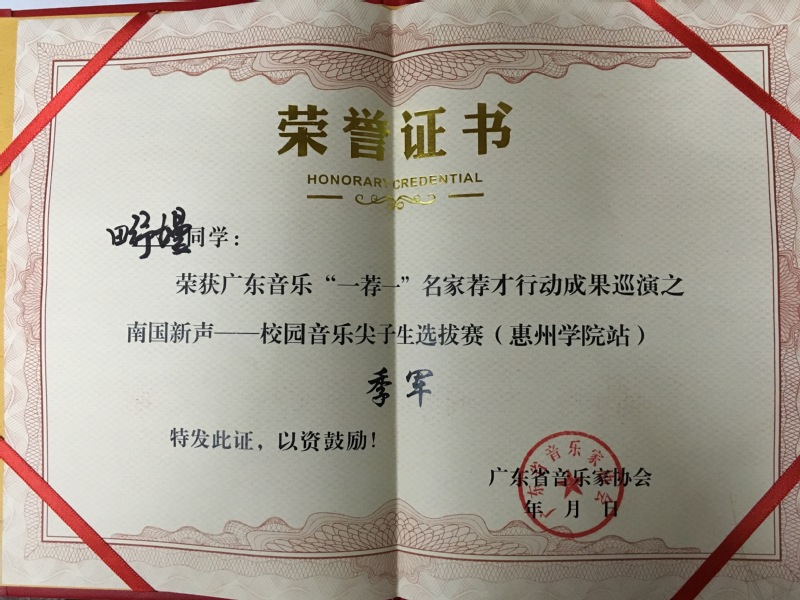 荣誉证书
HONORARY CREDENTIAL
同学：
荣获广东音乐“一荐一”名家荐才行动成果巡演之
南国新声——校园音乐尖子生选拔赛（惠州学院站）
季军
特发此证，以资鼓励！
广东省音乐家协会
年 月 日
广东省音乐家协会